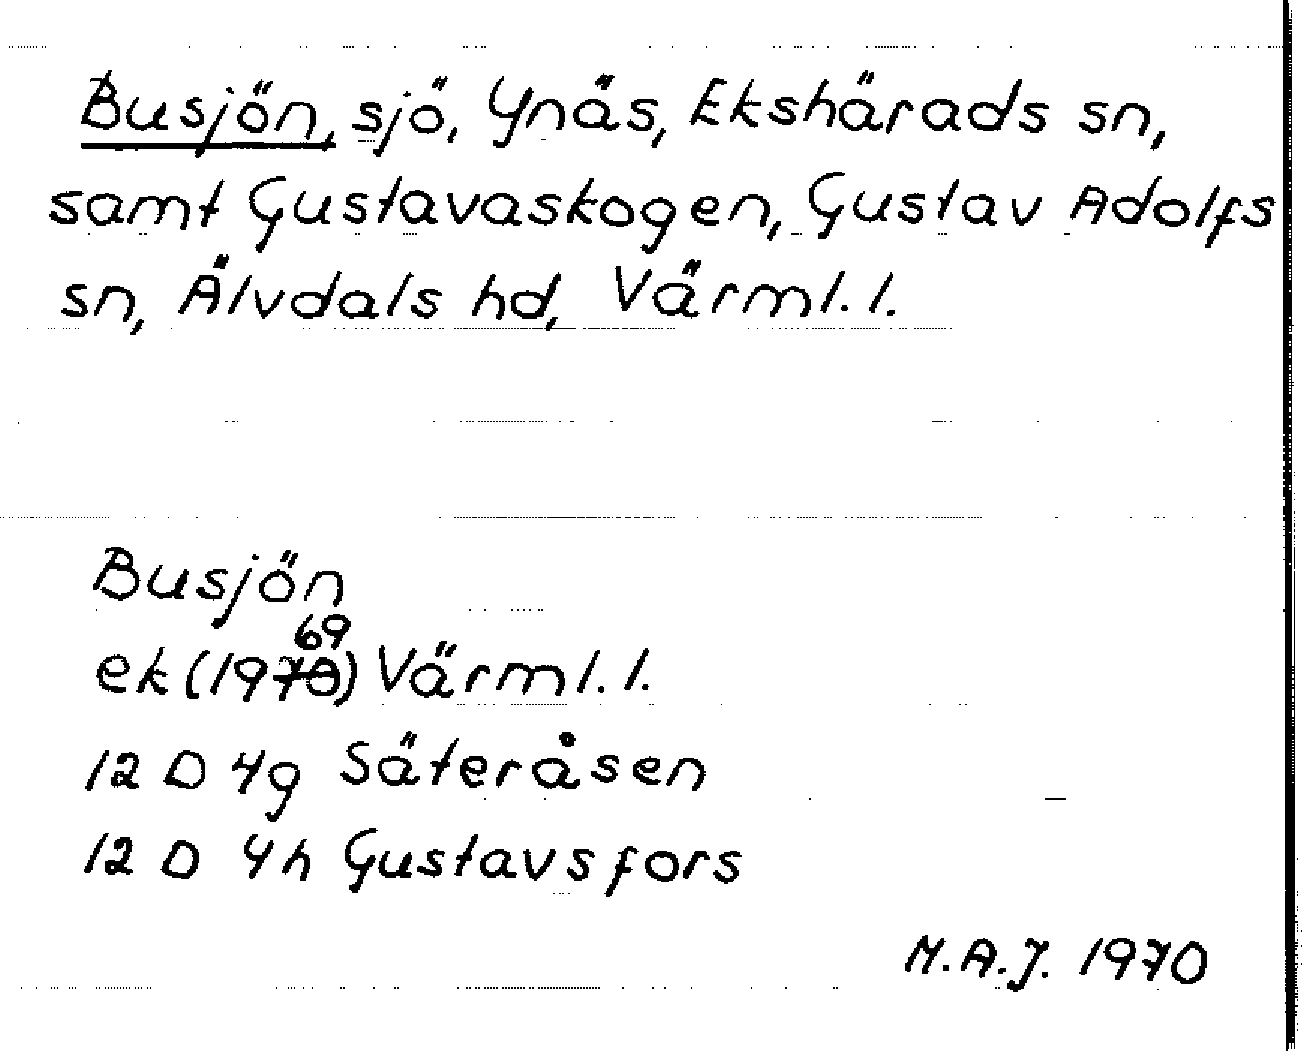 Busjön, sjö, Ynäs, Ekshärads sn,
samt Gustavaskogen, Gustav Adolfs
sn, Älvdals hd, Värml. l.
Busjön
69
ek (1970) Värml. l.
12 D 4g Säteråsen
12 D 4h Gustavsfors
M.A.J. 1970